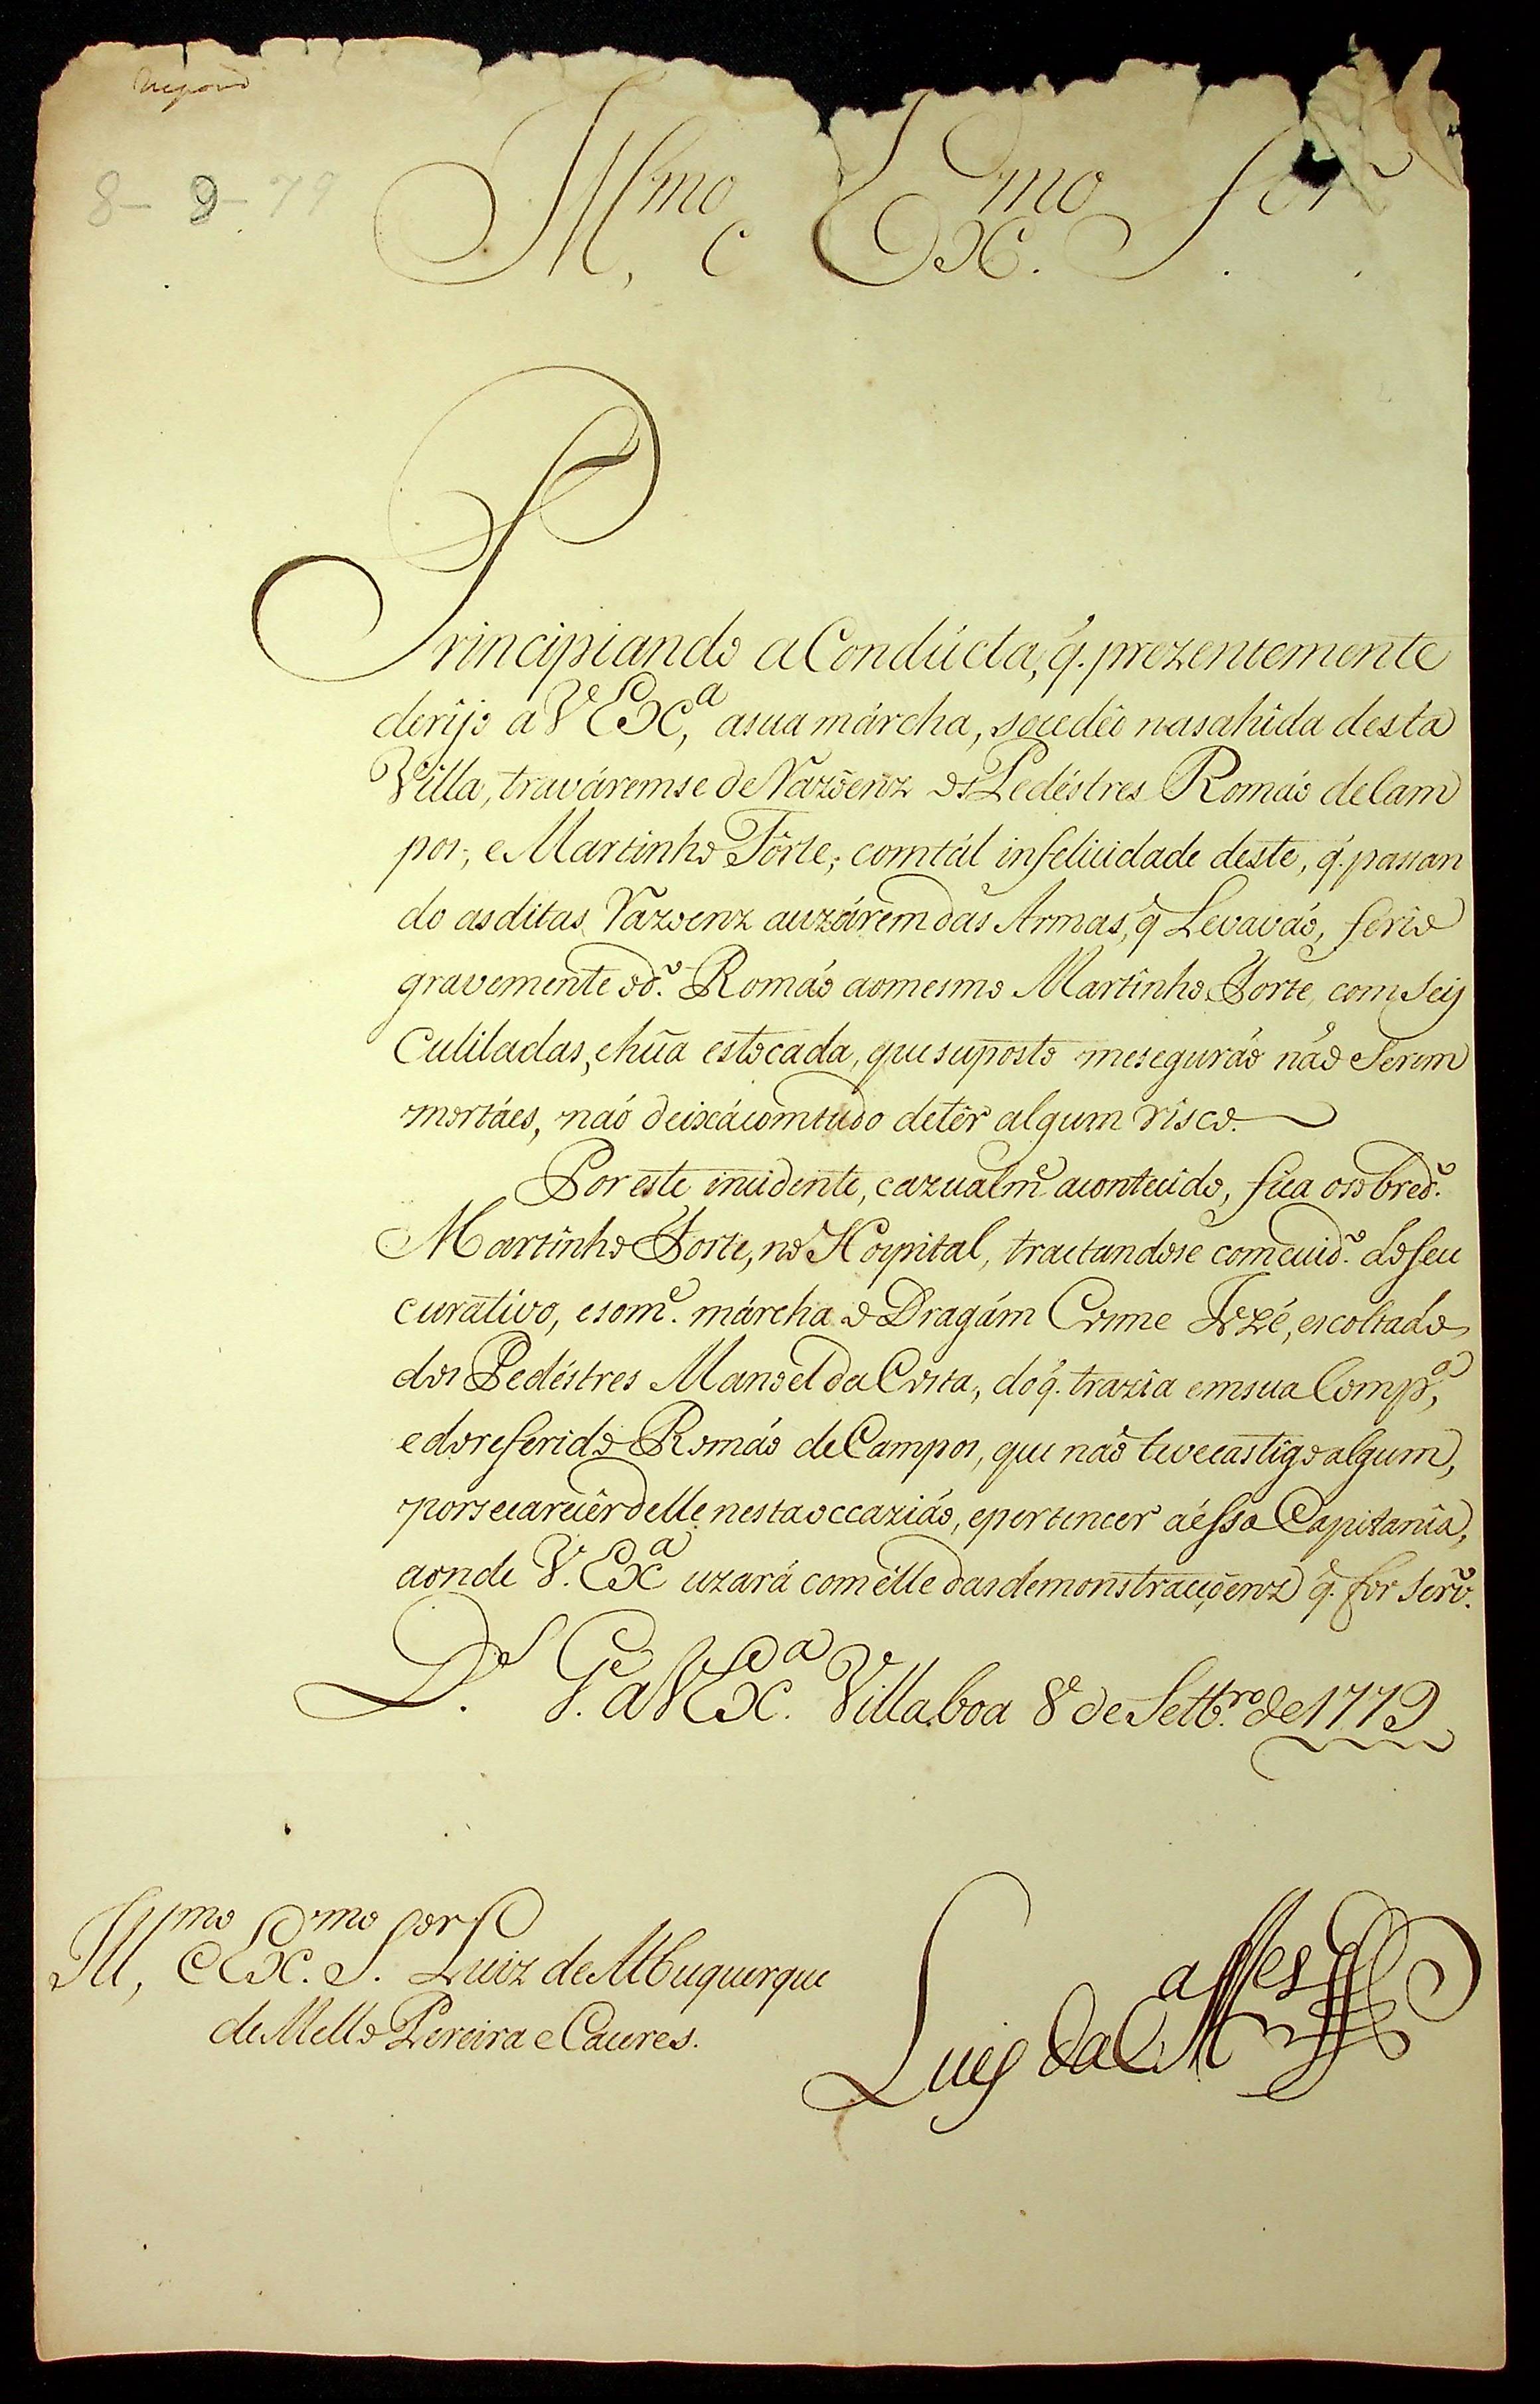 8 - 9 - 79
Ill.mo e Ex.mo S.or
Principiando a Condúcta, q̃. prezentemente
derîjo a V Exc.a, a sua márcha, socedêo na sahida desta
Villa, traváremse de Razoenz os Pedéstres Romáo de Cam
pos, e Martinho Fôrte, com tál infelicidade deste, q̃. passan
do as ditas Razoenz a uzárem das Armas, q̃ Levaváo, ferîo
gravemente o d.o Romáo ao mesmo Martînho Forte, com Seis
Cutiladas, e hũa estocada, que suposto me seguráo náo Serem
mortáes, náo deixá comtudo de têr algum risco.
Por este incidente, cazualm.e acontecido, fica o sobred.o
Martinho Forte, no Hospital, tractandose com cuid.o do seu
curativo, e som.e márcha o Dragám Cosme Jozé, escoltado
dos Pedéstres Manoel da Costa, do q̃. trazia em sua Comp.a,
e do referido Romáo de Campos, que náo teve castigo algum,
por se carecêr delle nesta occaziáo, e pertencer a éssa Capitanîa,
aonde V. Exc.a uzará com êlle das demonstraçoenz q̃. for Serv.o
D.s G.e a V Exc.a Villa boa 8 de Settb.ro de 1779
Ill.mo e Ex.mo S.or Luiz de Albuquerque
de Mello Pereira e Caceres.
Luis da C.a M.es